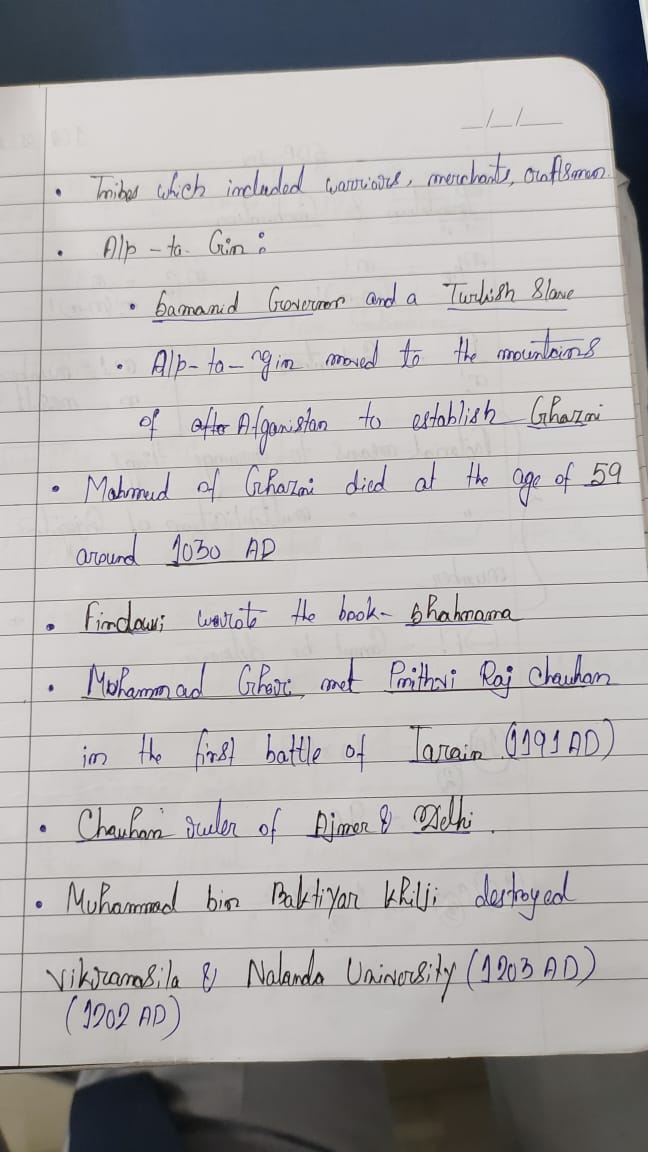 _/_/__
• Tribes which included warriors, merchants, craftsmen.
• Alp-ta-Gin:
• Samanid Governor and a Turkish Slave
• Alp-ta-gin moved to the mountains
of after Afganistan to establish Ghazni
• Mahmud of Ghazni died at the age of 59
around 1030 AD
• Firdausi wrote the book- Shahnama
• Mohammad Ghori met Prithvi Raj Chauhan
in the first battle of Tarain (1191 AD)
• Chauhan ruler of Ajmer & Delhi.
• Muhammad bin Baktiyar Khilji destroyed
Vikramsila & Nalanda University (1203 AD)
(1202 AD)